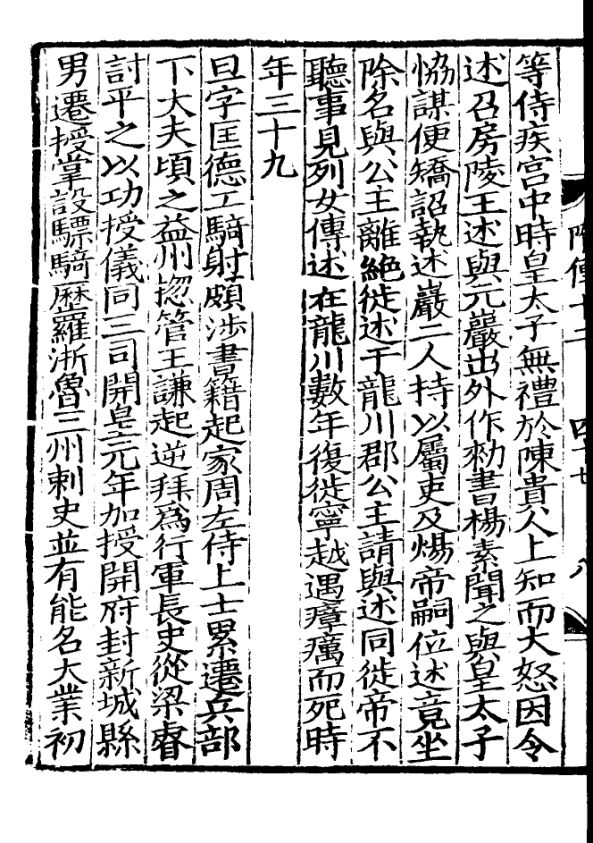 等侍疾宫中時皇太子無禮於陳貴人上知而大怒因令
述召房陵王述與元巖出外作勑書楊素聞之與皇太子
恊謀便矯詔執述巖二人持以屬吏及煬帝嗣位述竟坐
除名與公主離絶徙述于龍川郡公主請與述同徙帝不
聽事見列女傳述在龍川數年復徙寧越遇瘴癘而死時
年三十九
旦字匡德工騎射頗涉書籍起家周左侍上士累遷兵部
下大夫頃之益州揔管王謙起逆拜爲行軍長史從梁睿
討平之以功授儀同三司開皇元年加授開府封新城縣
男遷授掌設驃騎歷羅浙魯三州刺史並有能名大業初